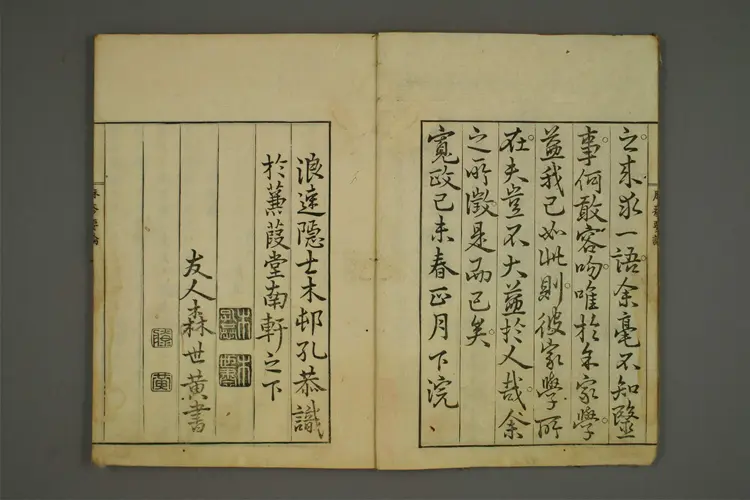 之来求一語余毫不知醫
事何敢容吻唯於余家學
益我已如此則彼家學所
在夫豈不大益於人哉余
之所徴是而已矣
寛政己未春正月下浣
浪速隠士木邨孔恭識
於蒹葭堂南軒之下
友人森世黄書